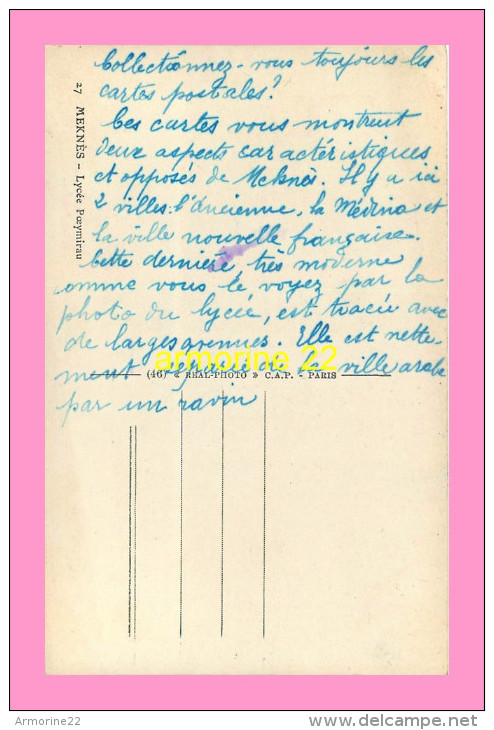 Collectionnez-vous toujours les
cartes postales?
Ces cartes vous montrent
deux aspects caractéristiques
et opposés de Meknès. Il y a ici
2 villes: l'ancienne, la Médina et
la ville nouvelle française.
Cette dernière, très moderne
comme vous le voyez par la
photo du lycée, est tracée avec
de larges avenues. Elle est nette-
ment séparée de la ville arabe
par un ravin
27 MEKNÈS - Lycée Pœymirau
(46) « REAL-PHOTO » C.A.P. - PARIS
armorine 22
Armorine22
http://www.delcampe.net